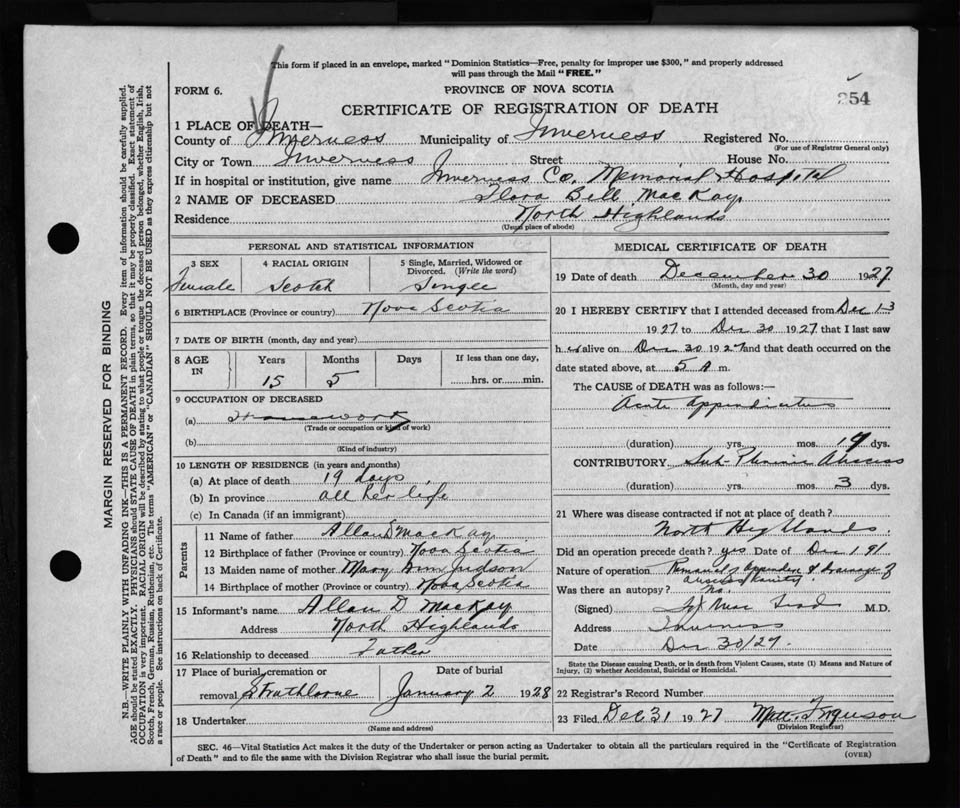 This form if placed in an envelope, marked "Dominion Statistics—Free, penalty for improper use $300," and properly addressed
will pass through the Mail "FREE."
FORM 6.
PROVINCE OF NOVA SCOTIA
254
CERTIFICATE OF REGISTRATION OF DEATH
1 PLACE OF DEATH—
County of Inverness Municipality of Inverness Registered No.
(For use of Registrar General only)
City or Town Inverness Street House No.
If in hospital or institution, give name Inverness Co. Memorial Hospital
2 NAME OF DECEASED Flora Bell MacKay
Residence North Highlands
(Usual place of abode)
PERSONAL AND STATISTICAL INFORMATION
3 SEX 4 RACIAL ORIGIN 5 Single, Married, Widowed or
Divorced. (Write the word)
Female Scotch Single
6 BIRTHPLACE (Province or country) Nova Scotia
7 DATE OF BIRTH (month, day and year)
8 AGE IN Years Months Days If less than one day,
15 5 hrs. or min.
9 OCCUPATION OF DECEASED
(a) Housework
(Trade or occupation or kind of work)
(b)
(Kind of industry)
10 LENGTH OF RESIDENCE (in years and months)
(a) At place of death 19 days
(b) In province all her life
(c) In Canada (if an immigrant)
Parents
11 Name of father Allan D MacKay
12 Birthplace of father (Province or country) Nova Scotia
13 Maiden name of mother Mary Ann
14 Birthplace of mother (Province or country) Nova Scotia
15 Informant's name Allan D MacKay
Address North Highlands
16 Relationship to deceased Father
17 Place of burial, cremation or Date of burial
removal Strathlorne January 2 1928
18 Undertaker
(Name and address)
MEDICAL CERTIFICATE OF DEATH
19 Date of death December 30 1927
(Month, day and year)
20 I HEREBY CERTIFY that I attended deceased from Dec 13
1927 to Dec 30 1927 that I last saw
her alive on Dec 30 1927 and that death occurred on the
date stated above, at 5 A m.
The CAUSE OF DEATH was as follows:—
Acute Appendicitis
(duration) yrs. mos. 19 dys.
CONTRIBUTORY Sub Phrenic Abscess
(duration) yrs. mos. 3 dys.
21 Where was disease contracted if not at place of death?
North Highlands.
Did an operation precede death? yes Date of Dec
Nature of operation Removal of Appendix & drainage of
abscess cavity
Was there an autopsy? No.
(Signed) M.D.
Address Inverness
Date Dec 30/27.
State the Disease causing Death, or in death from Violent Causes, state (1) Means and Nature of
Injury, (2) whether Accidental, Suicidal or Homicidal.
22 Registrar's Record Number
23 Filed Dec 31 1927 Matt. Ferguson
(Division Registrar)
SEC. 46—Vital Statistics Act makes it the duty of the Undertaker or person acting as Undertaker to obtain all the particulars required in the "Certificate of Registration
of Death" and to file the same with the Division Registrar who shall issue the burial permit.
(OVER)
MARGIN RESERVED FOR BINDING
N.B.—WRITE PLAINLY WITH UNFADING INK—THIS IS A PERMANENT RECORD. Every item of information should be carefully supplied.
AGE should be stated EXACTLY. PHYSICIANS should STATE CAUSE OF DEATH in plain terms, so that it may be properly classified. Exact statement of
OCCUPATION is very important. RACIAL ORIGIN will be described by stating to what people or tongue the deceased person belonged, whether English, Irish,
Scotch, French, German, Russian, Ruthenian, etc. The terms "AMERICAN" or "CANADIAN" SHOULD NOT BE USED as they express citizenship but not
a race or people. See instructions on back of Certificate.